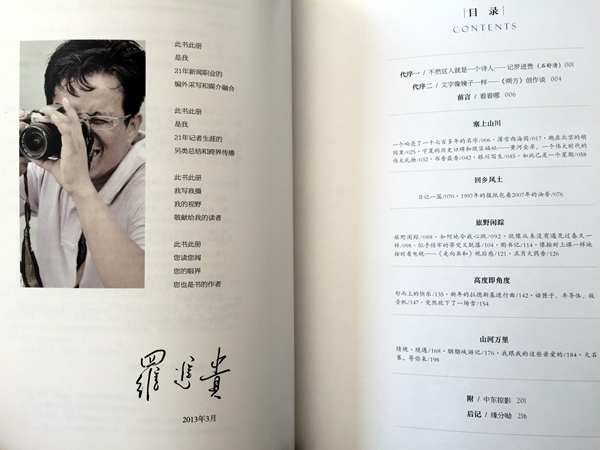 此书此册
是我
21年新闻职业的
编外采写和媒介融合
此书此册
是我
21年记者生涯的
另类总结和跨界传播
此书此册
我写我摄
我的视野
敬献给我的读者
此书此册
您读您阅
您的眼界
您也是书的作者
羅進貴
2013年3月
目 录
CONTENTS
代序一 / 不然这人就是一个诗人——记罗进贵（石舒清）001
代序二 / 文字像镜子一样——《朔方》创作谈 004
前言 / 看看哪 006
塞上山川
一个响亮了一千七百多年的名字/006，清官西海固/017，跑在北京的胡
同里/025，宁夏的历史口碑和镇宝福地——黄河金岸，一个伟大时代的
伟大礼物/032，书香益寿/042，银川写生/045，如此已是一个星期/058
回乡风土
日记一篇/070，1997年的报纸包着2007年的油香/076
旅野闲踪
旅野闲踪/088，如何地令我心跳/092，就像从来没有遇见过春天一
样/098，似乎恒牢的带突又就落/104，图书记/114，像按时上课一样地
按时看电视——《走向共和》观后感/121，正月大戏香/126
高度即角度
形而上的快乐/135，新年的拉德斯基进行曲/142，读赞子、丰赞体、报
告纸/147，突然放下了一场雪/154
山河万里
情境，境遇/168，烟烟城游记/176，我跟我的这些亲爱的/184，大名
事、等你来/198
附 / 中东掠影 201
后记 / 缘分呦 206